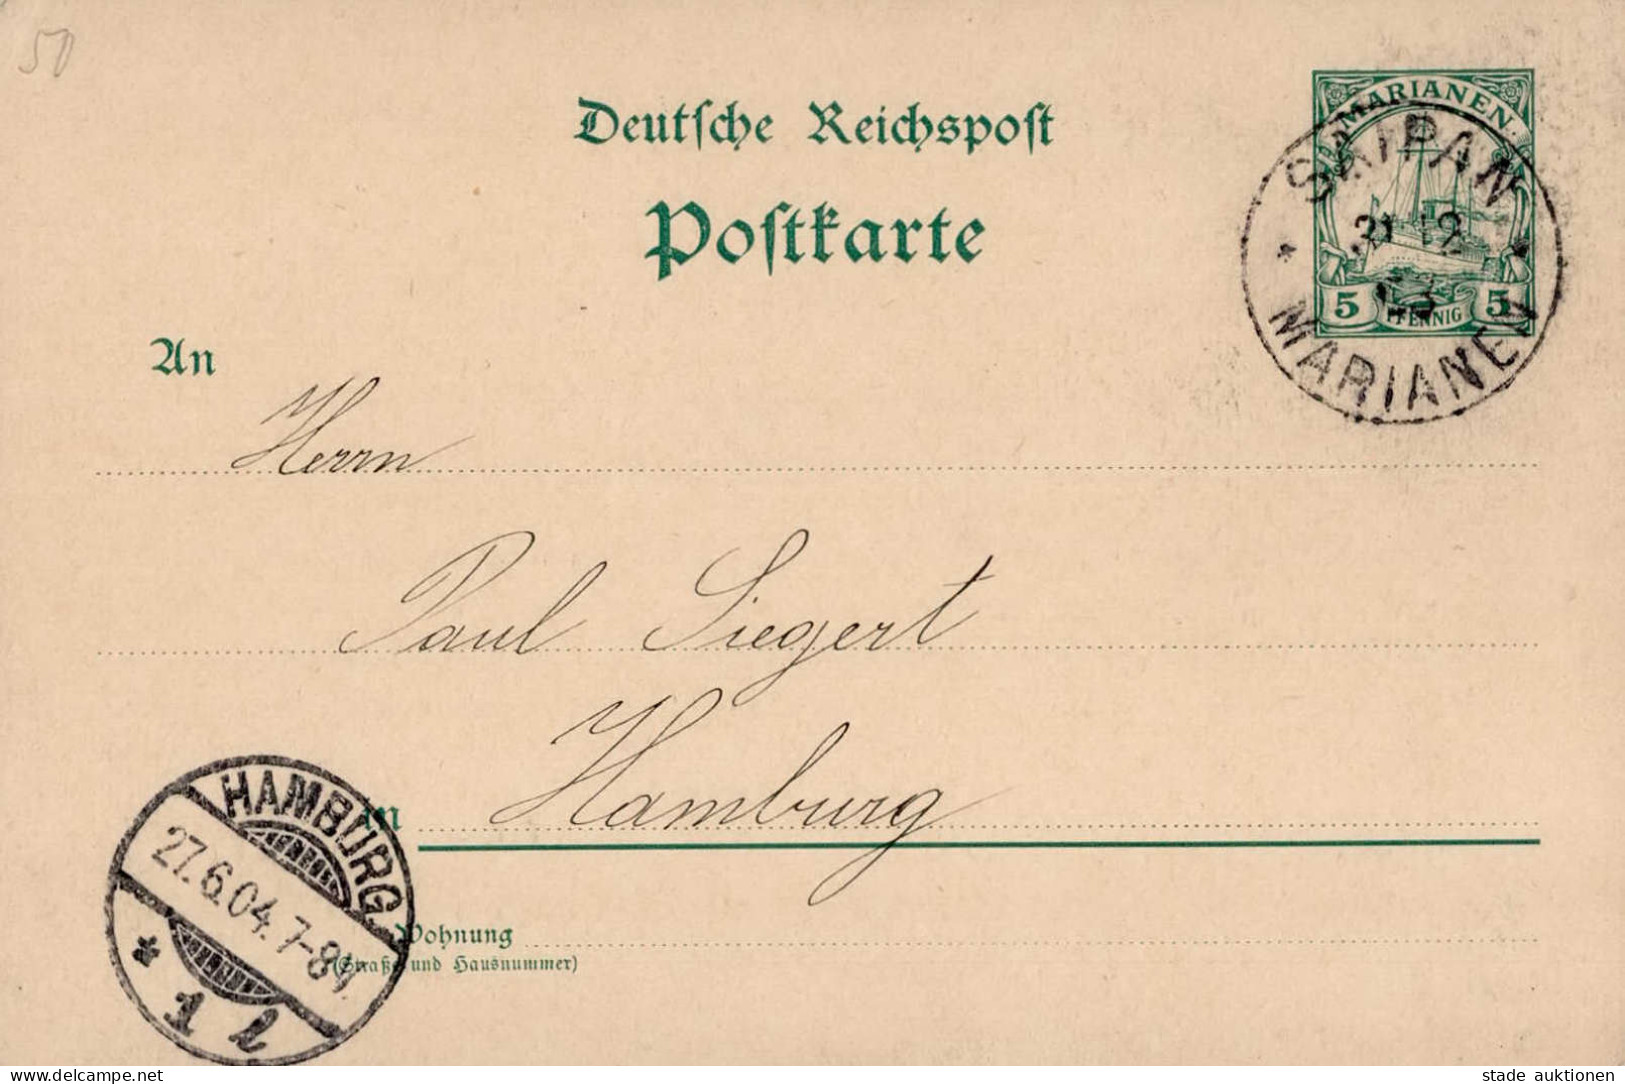 50
Deutsche Reichspost
Postkarte
MARIANEN
5 PFENNIG 5
SAIPAN
31 12
03
* *
MARIANEN
An
Herrn
Paul Siegert
in Hamburg
HAMBURG
27.6.04.7-8V.
* 1 1
Wohnung
(Straße und Hausnummer)
delcampe.net
stade auktionen